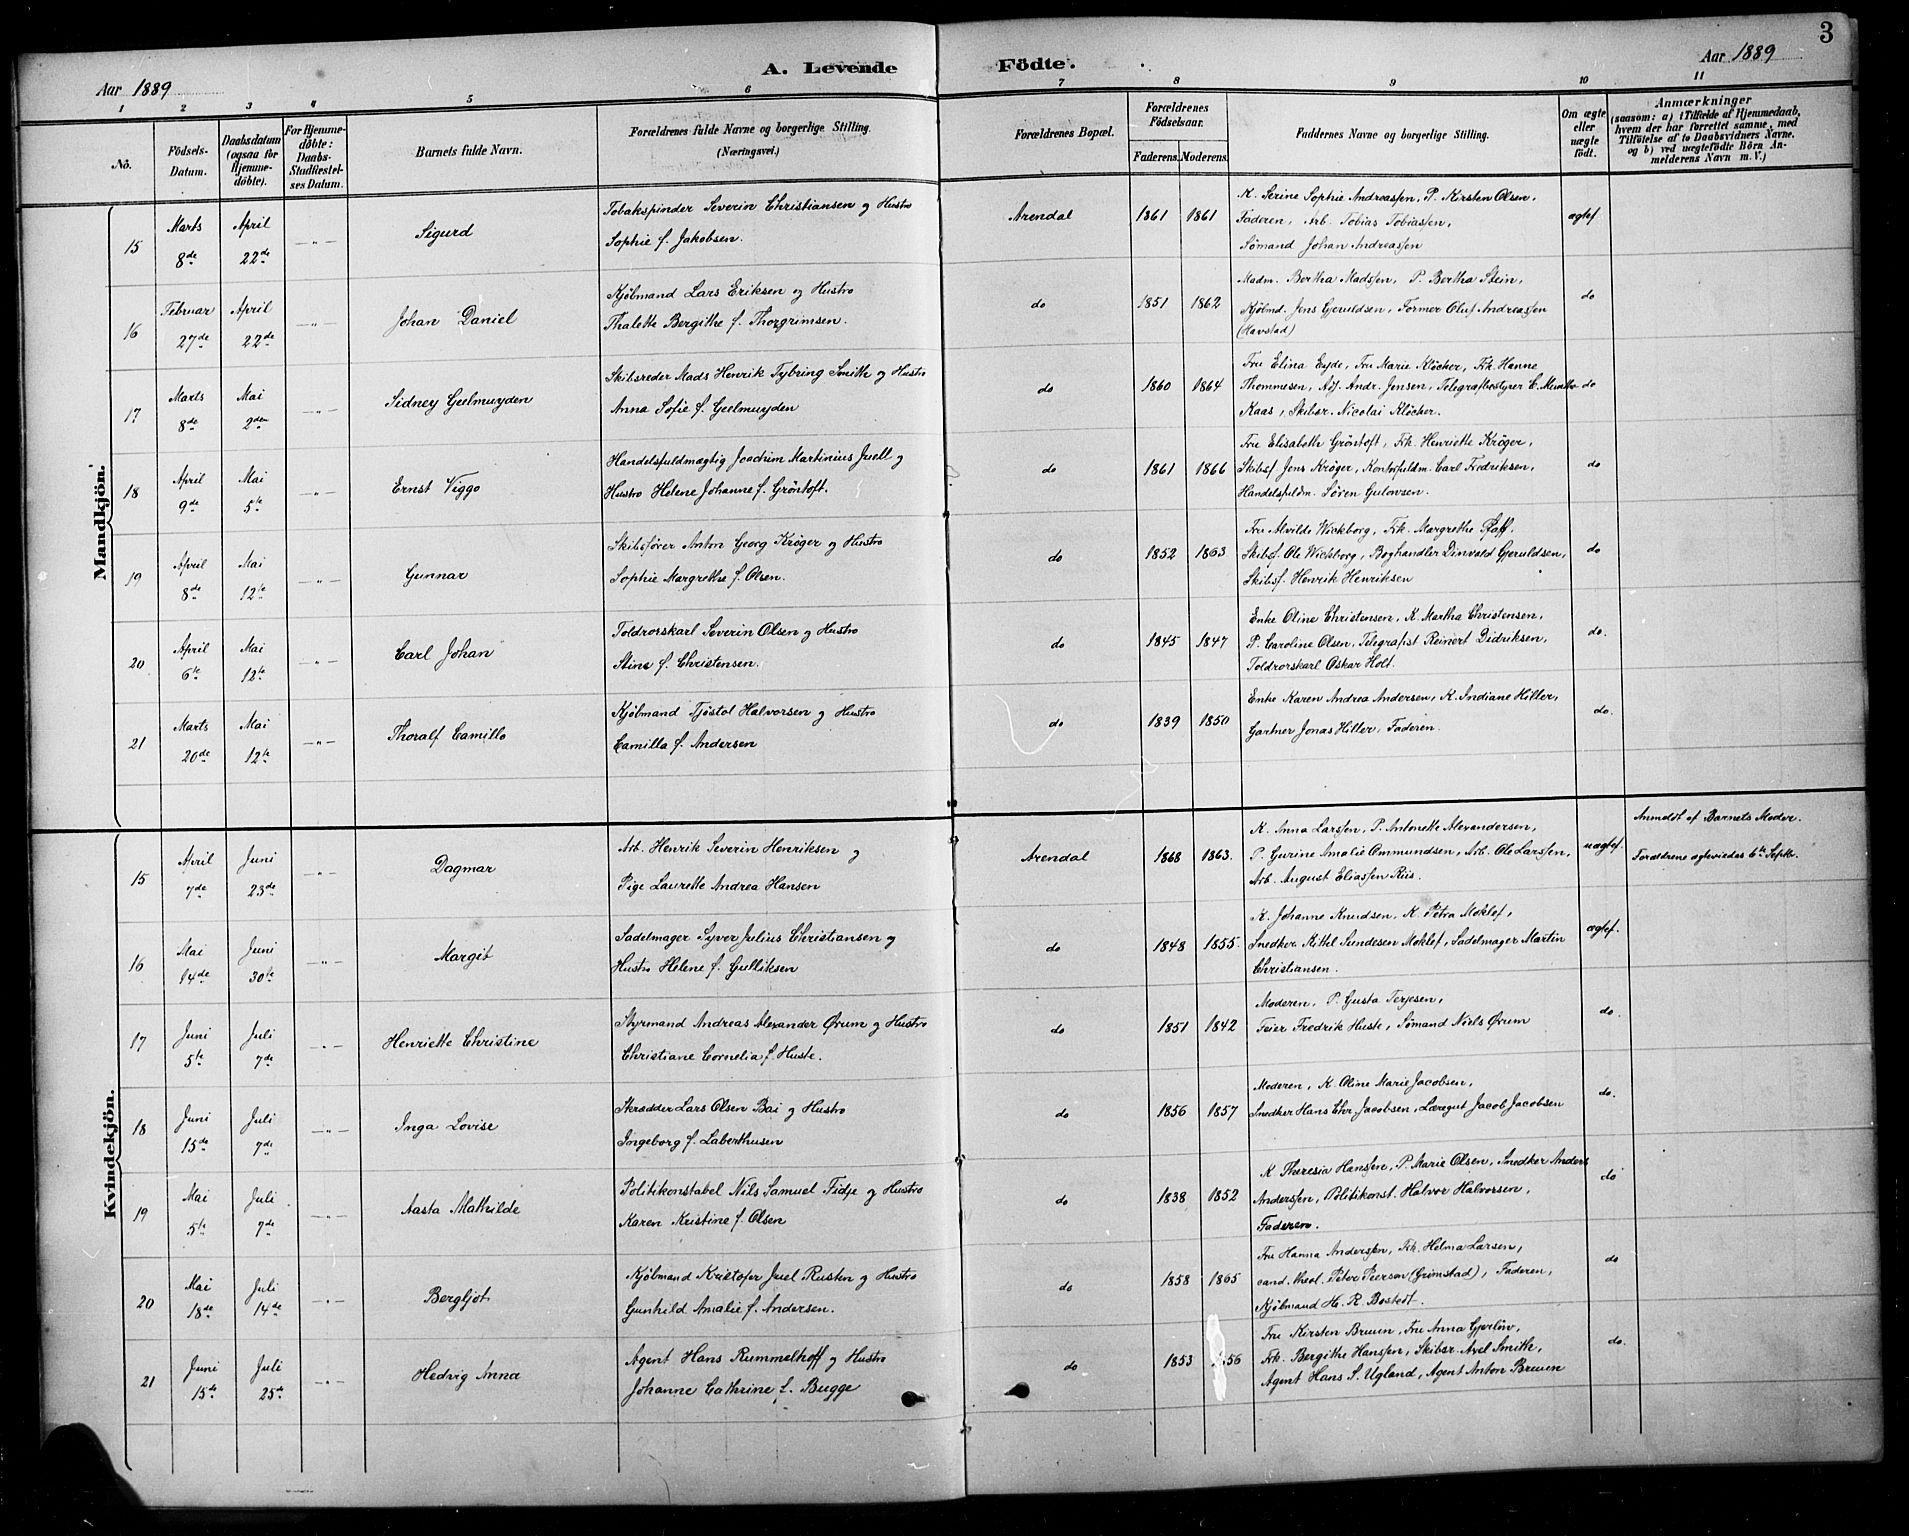 3
Aar 1889
A. Levende Födte.
Aar 1889
1 2 3 4 5 6 7 8 9 10 11
No.
Födsels-
Datum.
Daabsdatum
(ogsaa for
Hjemme-
döbte).
For Hjemme-
döbte:
Daabs-
Stadfæstel-
ses Datum.
Barnets fulde Navn.
Forældrenes fulde Navne og borgerlige Stilling.
(Næringsvei.)
Forældrenes Bopæl.
Forældrenes
Födselsaar.
Faderens. Moderens.
Faddernes Navne og borgerlige Stilling.
Om ægte
eller
uægte
født.
Anmærkninger
(saasom: a) i Tilfælde af Hjemmedaab,
hvem der har forrettet samme, med
Tilföielse af to Daabsvidners Navne.
og b) ved uægtefödte Börn An-
melderens Navn m. V.)
Mandkjön.
15 Marts 8de April 22de — „ — Sigurd
Tobakspinder Severin Christiansen og Hustro
Sophie f. Jakobsen.
Arendal 1861 1861
K. Serine Sophie Andreasſen, P. Kirsten Olsen,
Faderen, Arb. Tobias Tobiasſen,
Sømand Johan Andreasſen
ægtef
16 Februar 27de April 22de — „ — Johan Daniel
Kjøbmand Lars Eriksen og Hustro
Thalette Bergithe f. Thorgrimsen.
do 1851 1862
Madm. Bertha Madsſen, P. Bertha Stein,
Kjøbmd. Jens Gjeruldsen, Former Oluf Andreasſen
(Havstad)
do
17 Marts 8de Mai 2den — „ — Sidney Geelmuyden
Skibsreder Mads Henrik Tybring Smith og Hustro
Anna Sofie f. Geelmuyden
do 1860 1864
Fru Elina Eyde, Fru Marie Kløcher, Frk. Hanne
Thommesen, Adj. Andr. Jensen, Telegrafbestyrer C. Munthe
Kaas, Skibsr. Nicolai Kløcher.
do
18 April 9de Mai 5te — „ — Ernst Viggo
Handelsfuldmægtig Joachim Martinius Juell og
Hustro Helene Johanne f. Gröntoft.
do 1861 1866
Fru Elisabeth Gröntoft, Frk. Henriette Krøger,
Skibsf. Jens Krøger, Kontrfuldm. Carl Fredriksen,
Handelsfuldm. Søren Gulowsen.
do
19 April 8de Mai 12te — „ — Gunnar
Skibsfører Anton Georg Krøger og Hustro
Sophie Margrethe f. Olsen.
do 1852 1863
Fru Alvilde Wickborg, Frk. Margrethe Pfaff.
Skibsf. Ole Wickborg, Boghandler Dinvald Gjeruldsen,
Skibsf. Henrik Henriksen
do
20 April 6te Mai 12te — „ — Carl Johan
Toldrorskarl Severin Olsen og Hustro
Stine f. Christensen.
do 1845 1847
Enke Oline Christensen, K. Martha Christensen,
P. Caroline Olsen, Telegrafist Reinert Didriksen,
Toldrorskarl Oskar Holt.
do.
21 Marts 20de Mai 12te — „ — Thoralf Camillo
Kjøbmand Tjøstol Halvorsen og Hustro
Camilla f. Andersen
do 1839 1850
Enke Karen Andrea Andersen, K. Indiane Hiller,
Gartner Jonas Hiller, Faderen.
do.
Kvindekjön.
15 April 7de Juni 23de — „ — Dagmar
Arb. Henrik Severin Henriksen og
Pige Laurette Andrea Hansen
Arendal 1868 1863.
K. Anna Larsſen, P. Antonette Alexandersen,
P. Gurine Amalie Ommundsen, Arb. Ole Larsſen,
Arb. August Eliasſen Riis.
uægtef.
Anmeldt af Barnets Moder.
Forældrene ægteviedes 6te Septbr.
16 Mai 14de Juni 30te — „ — Margit
Sadelmager Syver Julius Christiansen og
Hustro Helene f. Gulliksen
do 1848 1855.
K. Johanne Knudsen, K. Petra Moklef,
Snedker Kittel Sundesen Moklef, Sadelmager Martin
Christiansen.
ægtef.
17 Juni 5te Juli 7de — „ — Henriette Christine
Styrmand Andreas Alexander Ørum og Hustro
Christiane Cornelia f. Huste.
do 1851 1842
Moderen, P. Gusta Terjesen,
Feier Fredrik Huste, Sømand Niels Ørum
do.
18 Juni 15de Juli 7de — „ — Inga Lovise
Skrædder Lars Olsen Bai og Hustro
Ingeborg f. Laberthusen
do 1856 1857
Moderen, K. Oline Marie Jacobsen,
Snedker Hans Chr. Jacobsen, Læregut Jacob Jacobsen
do.
19 Mai 5te Juli 7de — „ — Aasta Mathilde
Politikonstabel Nils Samuel Tidje og Hustro
Karen Kristine f. Olsen
do 1838 1852
K Theresia Hansſen, P. Marie Olsen, Snedker Anders
Andersſen, Politikonst. Halvor Halvorsen,
Faderen.
do
20 Mai 18de Juli 14de — „ — Bergljot
Kjøbmand Kristofer Juel Rusten og Hustro
Gunhild Amalie f. Andersen.
do 1858 1865
Fru Hanna Andersſen, Frk. Helma Larsen,
cand. theol. Peter Peerson (Grimstad), Faderen,
Kjøbmand H. R. Bostedt.
do
21 Juni 15de Juli 25de — „ — Hedvig Anna
Agent Hans Rummelhoff og Hustro
Johanne Cathrine f. Bugge
do 1853 56
Fru Kirsten Bruun, Fru Anna Gjerløv,
Frk. Bergithe Hansſen, Skibsr. Axel Smith,
Agent Hans S. Ugland, Agent Anton Bruun
do.